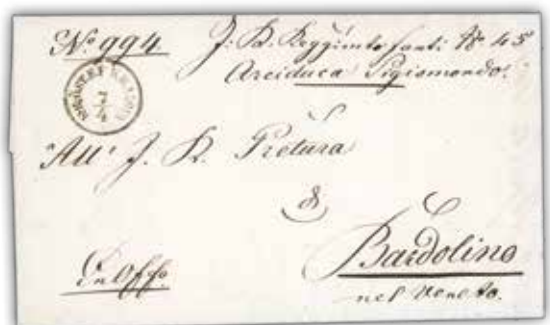 No 994. I: R. Reggimto fanti No 45
Arciduca Sigismondo.
All' I. R. Pretura
di
Bardolino
nel Veneto.
In Offo.